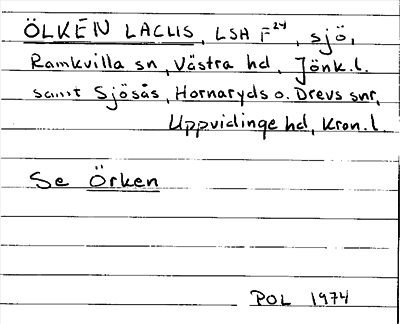 ÖLKEN LACUS, LSH F²⁴, sjö,
Ramkvilla sn, Västra hd, Jönk.l.
samt Sjösås, Hornaryds o. Drevs snr,
Uppvidinge hd, Kron.l.
Se Örken
POL 1974